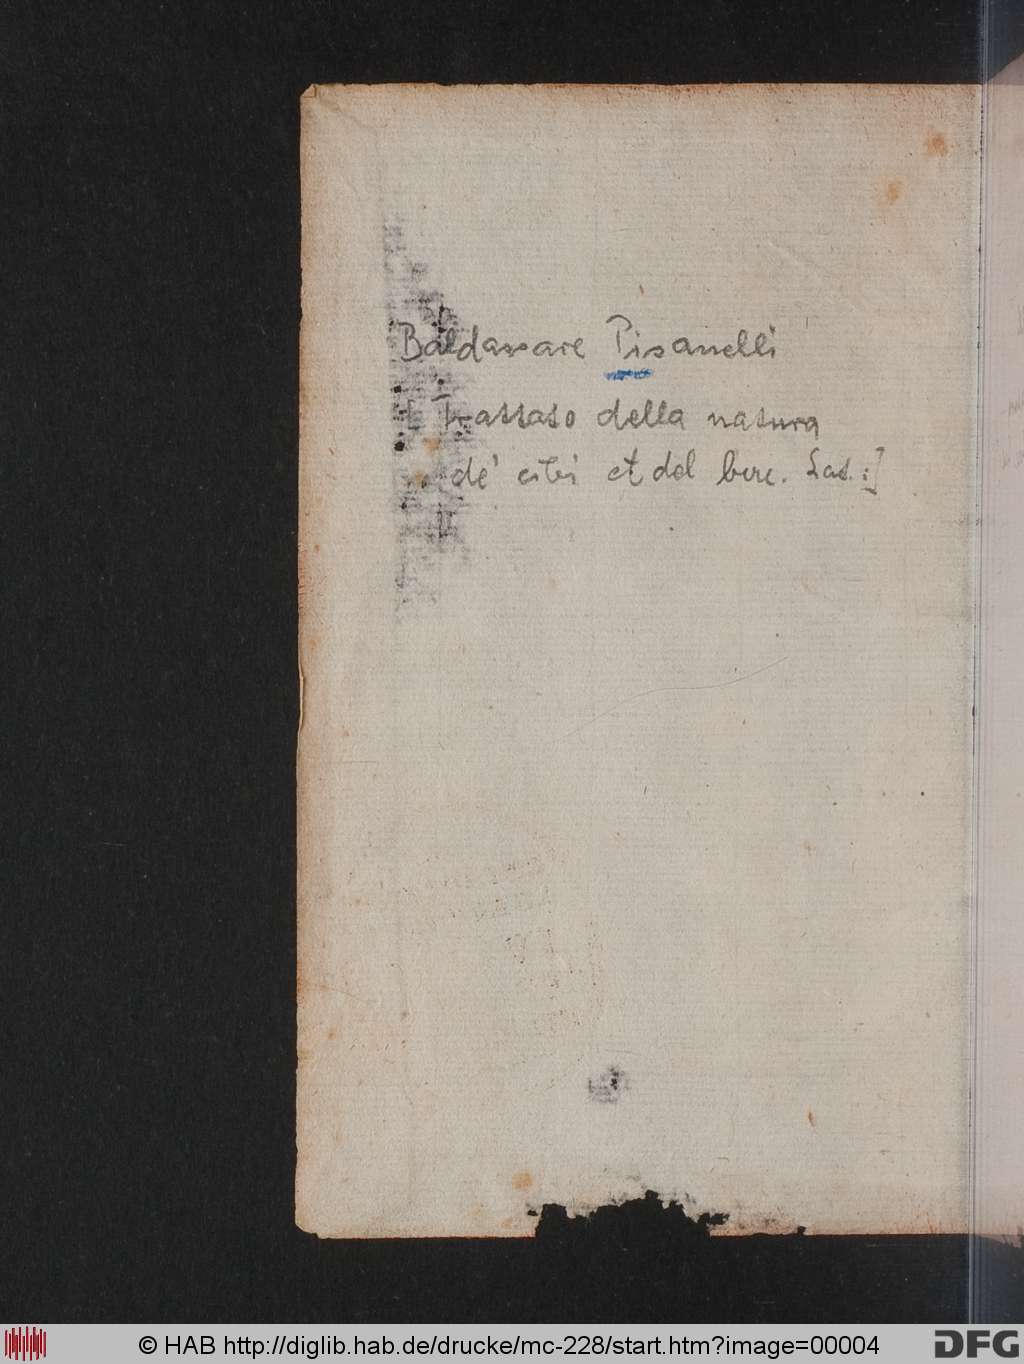 Baldassare Pisanelli
[Trattato della natura
de' cibi et del bere. Lat.:]
© HAB http://diglib.hab.de/drucke/mc-228/start.htm?image=00004
DFG